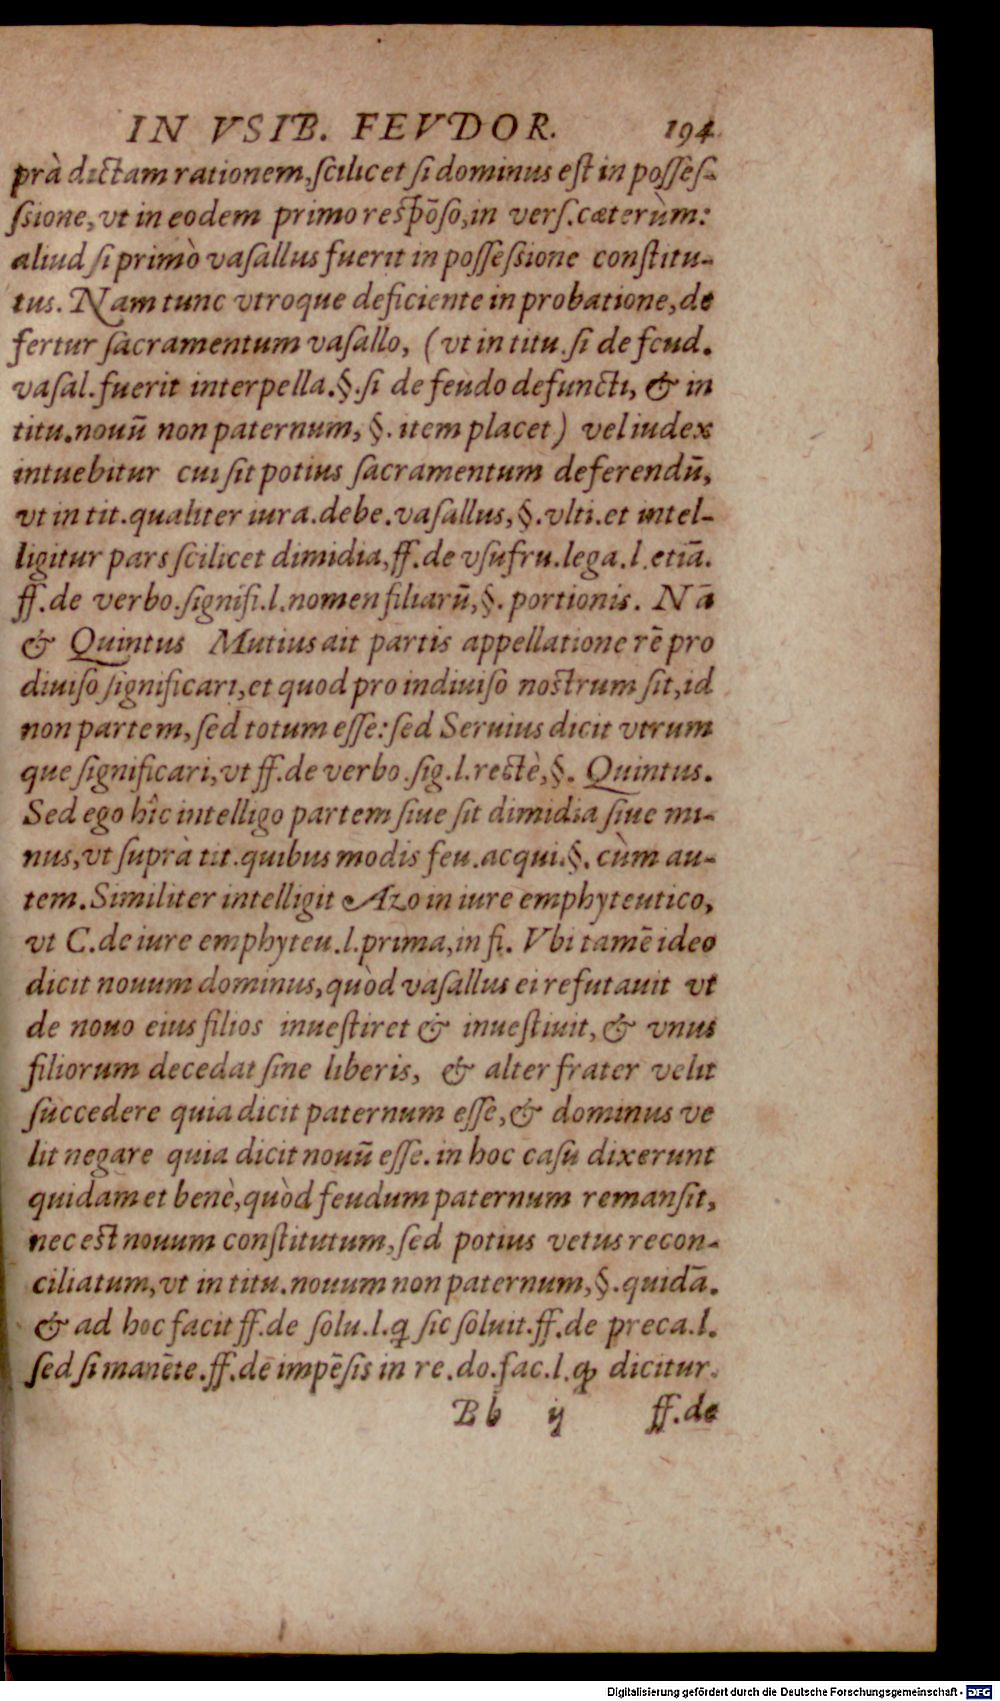 IN VSIB. FEVDOR. 194
prà dictam rationem, scilicet si dominus est in posses-
ssione, vt in eodem primo respōso, in vers. cæterùm:
aliud si primò vasallus fuerit in possessione constitu-
tus. Nam tunc vtroque deficiente in probatione, de
fertur sacramentum vasallo, (vt in titu. si de feud.
vasal. fuerit interpella. §. si de feudo defuncti, & in
titu. nouū non paternum, §. item placet) vel iudex
intuebitur cui sit potius sacramentum deferendū,
vt in tit. qualiter iura. debe. vasallus, §. vlti. et intel-
ligitur pars scilicet dimidia, ff. de vsufru. lega. l. etiā.
ff. de verbo. signifi. l. nomen filiarū, §. portionis. Nā
& Quintus Mutius ait partis appellatione rē pro
diuiso significari, et quod pro indiuiso nostrum sit, id
non partem, sed totum esse: sed Seruius dicit vtrum
que significari, vt ff. de verbo. sig. l. rectè, §. Quintus.
Sed ego hîc intelligo partem siue sit dimidia siue mi-
nus, vt suprà tit. quibus modis feu. acqui. §. cùm au-
tem. Similiter intelligit Azo in iure emphyteutico,
vt C. de iure emphyteu. l. prima, in fi. Vbi tamē ideo
dicit nouum dominus, quòd vasallus ei refutauit vt
de nouo eius filios inuestiret & inuestiuit, & vnus
filiorum decedat sine liberis, & alter frater velit
succedere quia dicit paternum esse, & dominus ve
lit negare quia dicit nouū esse. in hoc casu dixerunt
quidam et benè, quòd feudum paternum remansit,
nec est nouum constitutum, sed potius vetus recon-
ciliatum, vt in titu. nouum non paternum, §. quidā.
& ad hoc facit ff. de solu. l. ꝗ sic soluit. ff. de preca. l.
sed si manēte. ff. de impēsis in re. do. fac. l. ꝙ dicitur.
Bb ij ff. de
Digitalisierung gefördert durch die Deutsche Forschungsgemeinschaft - DFG